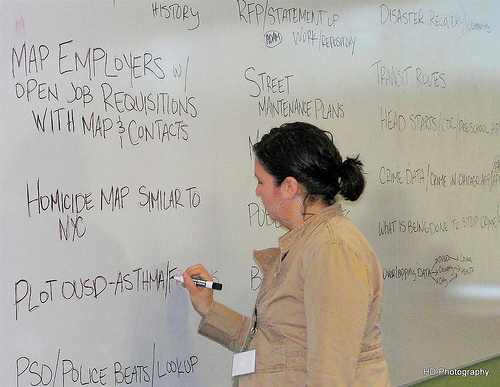 HISTORY
MAP EMPLOYERS W/
OPEN JOB REQUISITIONS
WITH MAP & CONTACTS
HOMICIDE MAP SIMILAR TO
NYC
PLOT OUSD-ASTHMA/F
PSD/POLICE BEATS/LOOKUP
RFP/STATEMENT OF
WORK/REPOSITORY
STREET
MAINTENANCE PLANS
M
PUB
B
DISASTER RECOVERY/
TRANSIT ROUTES
HEAD STARTS/CDC/PRESCHOOL
CRIME DATA/CRIME IN CHICAGO APP/
WHAT IS BEING DONE TO STOP CRIME
OVERLAPPING DATA
CRIME
HD Photography